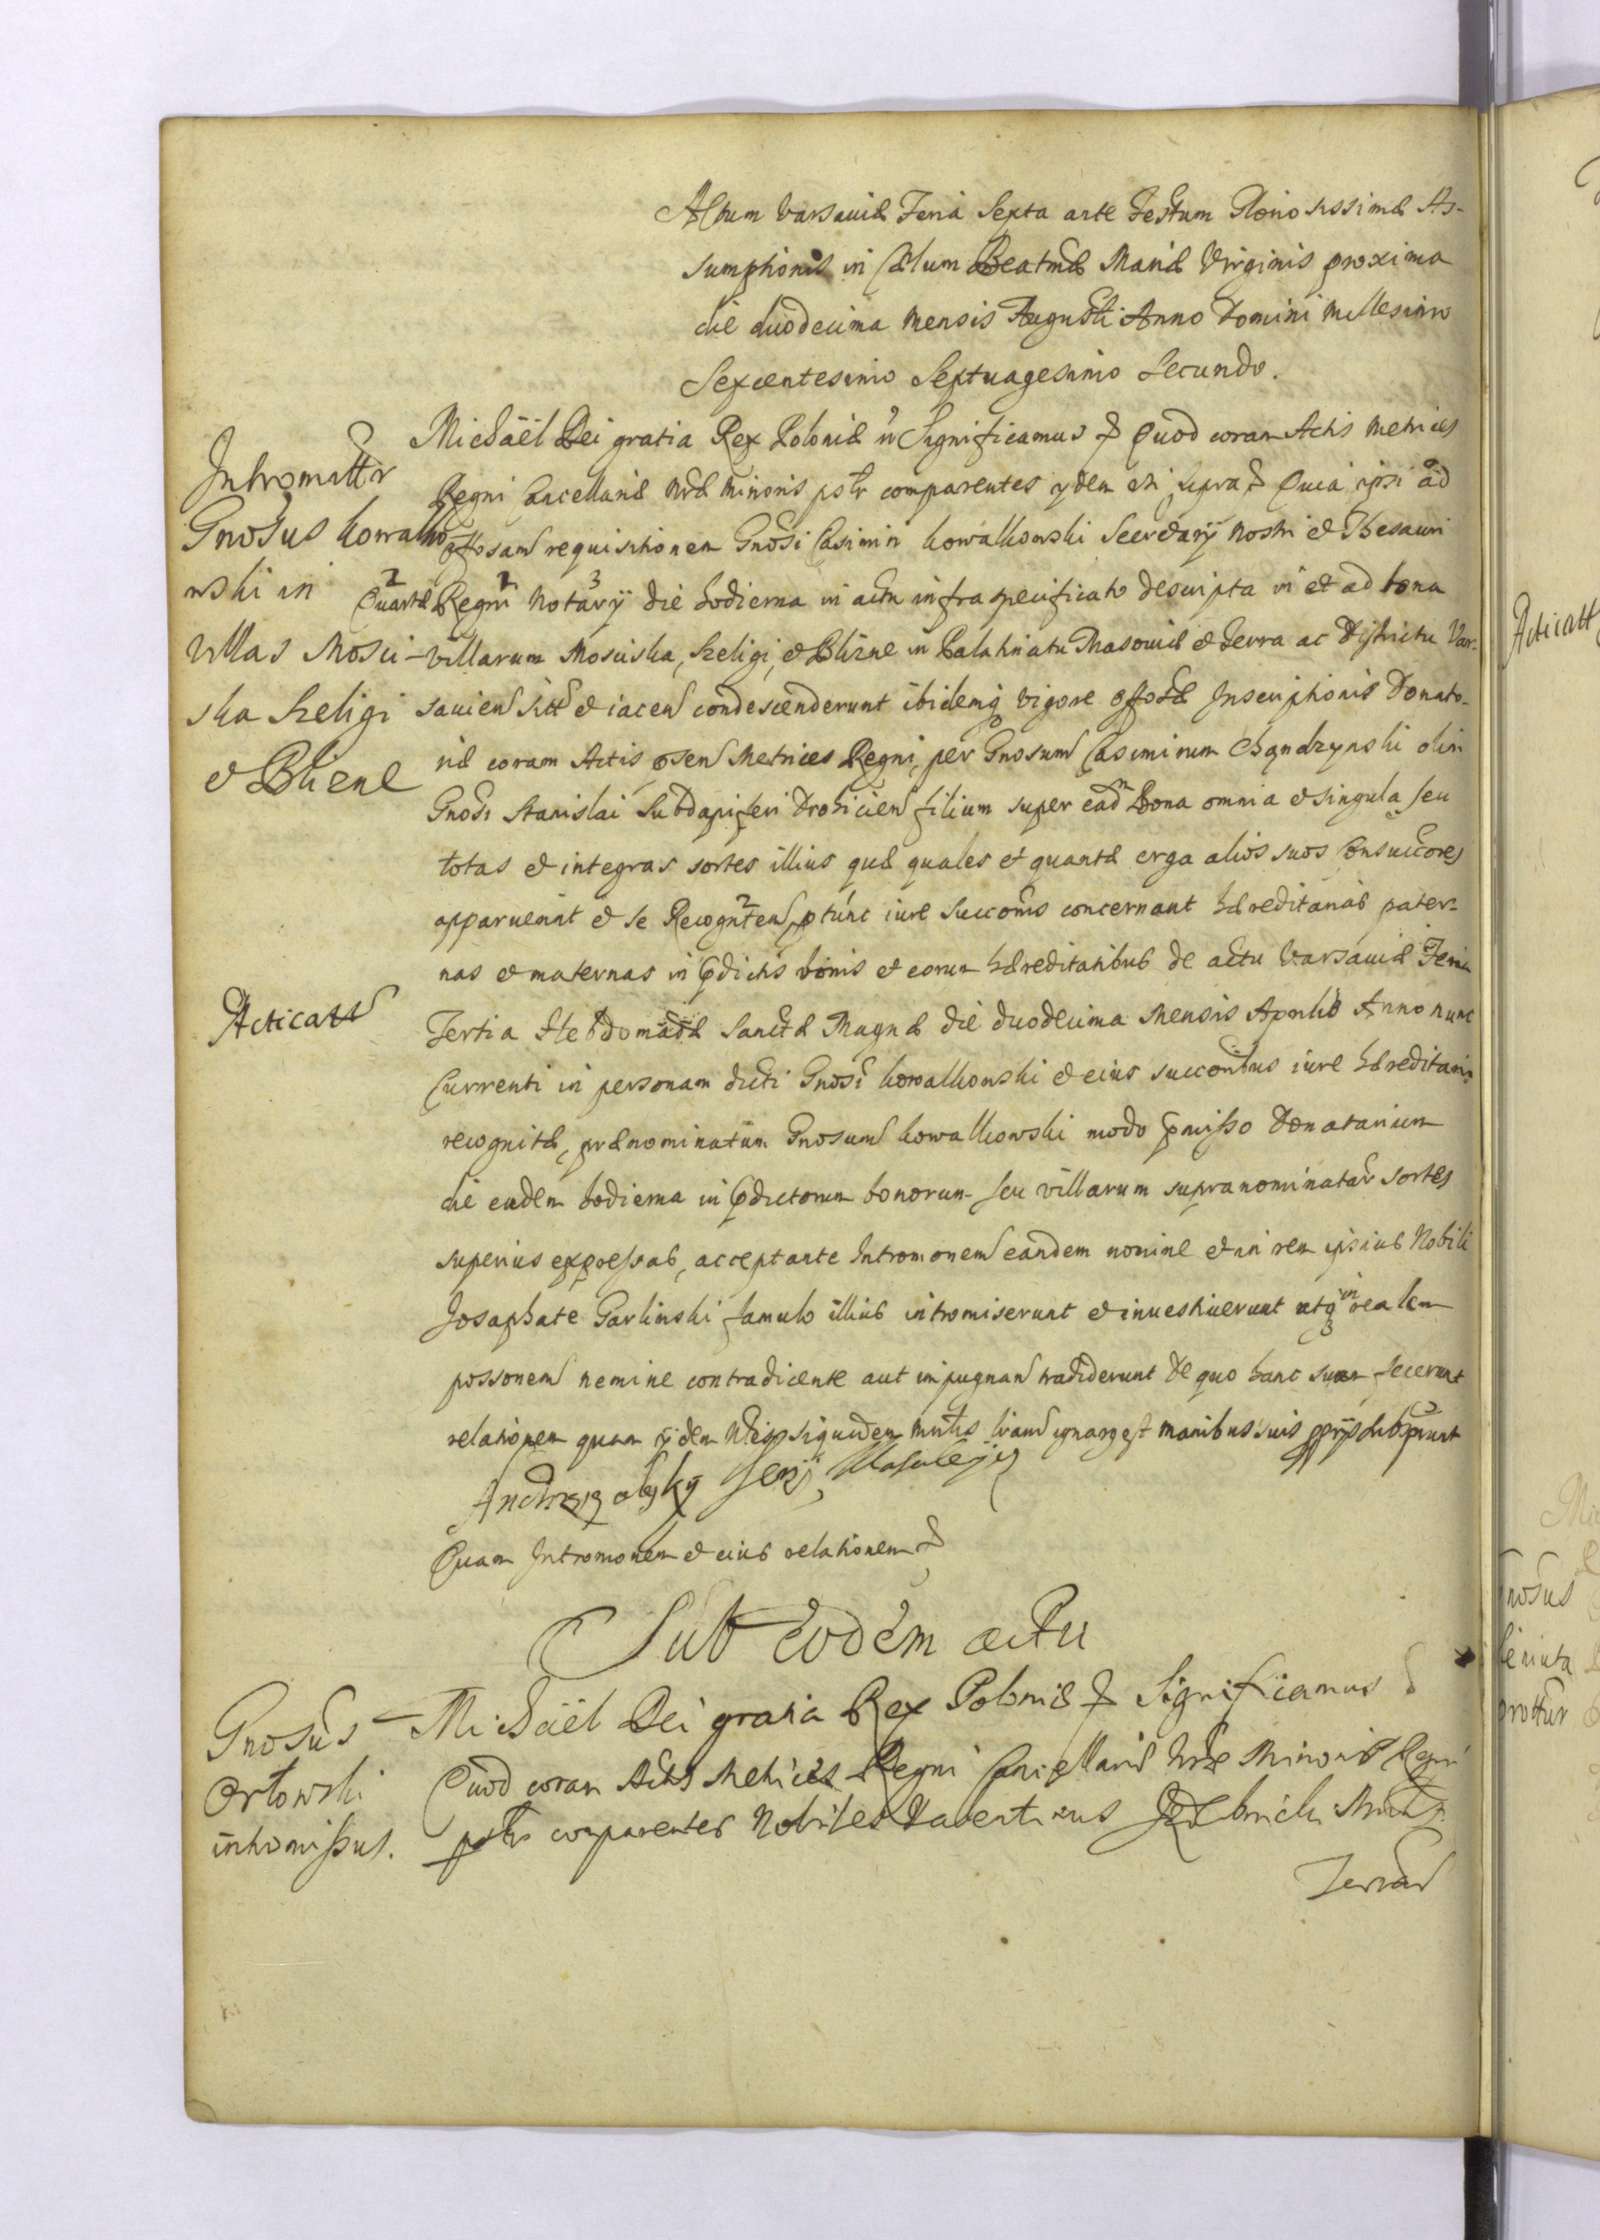 Actum Varsaviæ Feria Sexta ante Festum Gloriosissimæ As-
sumptionis in Cœlum Beatmæ Mariæ Virginis proxima
die duodecima mensis Augusti Anno Domini Millesimo
Sexcentesimo Septuagesimo Secundo.
Intromittr
Gnosus Kowalko
wski in
Villas Mosci-
ska Szeligi
et Blizne
Michaël Dei gratia Rex Poloniæ Significamus Quod coram Actis Metrices
Regni Cancellariæ Nræ Minoris pstr comparentes ijdem uti supra Quia ipsi ad
offosam requisitionem Gnosi Casimiri Kowalkowski Secretarij Nostri et Thesauri
Quartæ Regni Notarij die hodierna in actu infraspecificato descripta in et ad bona
villarum Mosciska, Szeligi, et Blizne in Palatinatu Masoviæ et Terra ac Districtu Var-
savien sitt et iacen condescenderunt ibidemq vigore offosæ Inscriptionis Donato-
riæ coram Actis psen Metrices Regni, per Gnosum Casimirum Chądzynski olim
Gnosi Stanislai Subdapiferi Drohicien filium super eadm Bona omnia et singula seu
totas et integras sortes illius quæ quales et quantæ erga alios suos Consuccores
apparuerint et se Recognten ptunc iure succonis concernant hæreditarias pater-
nas et maternas in pdictis bonis et eorum hæreditatibus de actu Varsaviæ Feria
Acticatt
Tertia Hebdomadæ Sanctæ Magnæ die duodecima Mensis Aprilis Anno nunc
Currenti in personam dicti Gnosi Kowalkowski et eius succoribus iure hæreditario
recognitæ, prænominatum Gnosum Kowalkowski modo pmisso Donatarium
die eadem hodierna in pdictorum bonorum seu villarum supranominatar sortes
superius expressas, acceptante Intromonem eandem nomine et in rem ipsius Nobili
Josaphate Garlinski famulo illius intromiserunt et investiverunt atq in realem
possonem nemine contradicente aut impugnan tradiderunt De quo hanc suam fecerunt
relationem quam ijdem siquidem manibus suis pprijs subspserunt
Quam Intromonem et eius relationem
Sub Eodem actu
Gnosus
Orłowski
intromissus.
Michaël Dei gratia Rex Poloniæ Significamus
Quod coram Actis Metrices Regni Cancellariæ Nræ Minoris Regni
pstr comparentes Nobiles Valentinus
Terræ